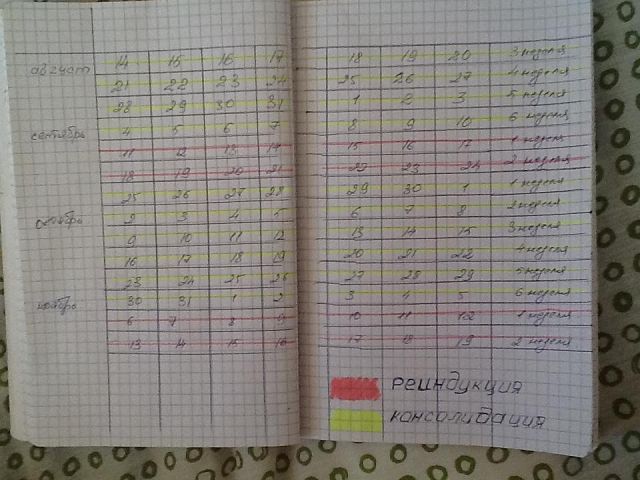 август 14 15 16 17 18 19 20 3 неделя
21 22 23 24 25 26 27 4 неделя
28 29 30 31 1 2 3 5 неделя
сентябрь 4 5 6 7 8 9 10 6 неделя
11 12 13 14 15 16 17 1 неделя
18 19 20 21 22 23 24 2 неделя
25 26 27 28 29 30 1 1 неделя
октябрь 2 3 4 5 6 7 8 2 неделя
9 10 11 12 13 14 15 3 неделя
16 17 18 19 20 21 22 4 неделя
23 24 25 26 27 28 29 5 неделя
ноябрь 30 31 1 2 3 4 5 6 неделя
6 7 8 9 10 11 12 1 неделя
13 14 15 16 17 18 19 2 неделя
реиндукция
консолидация